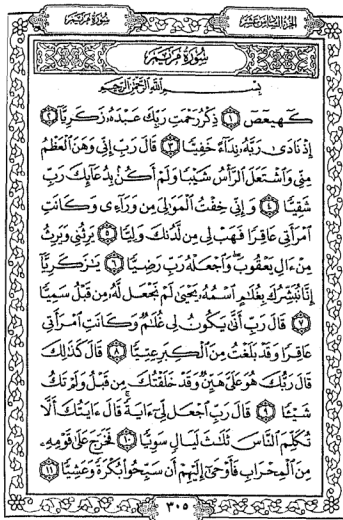 سورة مريم
الجزء السادس عشر
سُورَةُ مَرْيَمَ
بِسْمِ اللَّهِ الرَّحْمَٰنِ الرَّحِيمِ
كٓهيعٓصٓ ١ ذِكْرُ رَحْمَتِ رَبِّكَ عَبْدَهُۥ زَكَرِيَّآ ٢
إِذْ نَادَىٰ رَبَّهُۥ نِدَآءً خَفِيًّا ٣ قَالَ رَبِّ إِنِّى وَهَنَ ٱلْعَظْمُ
مِنِّى وَٱشْتَعَلَ ٱلرَّأْسُ شَيْبًا وَلَمْ أَكُنۢ بِدُعَآئِكَ رَبِّ
شَقِيًّا ٤ وَإِنِّى خِفْتُ ٱلْمَوَٰلِىَ مِن وَرَآءِى وَكَانَتِ
ٱمْرَأَتِى عَاقِرًا فَهَبْ لِى مِن لَّدُنكَ وَلِيًّا ٥ يَرِثُنِى وَيَرِثُ
مِنْ ءَالِ يَعْقُوبَ وَٱجْعَلْهُ رَبِّ رَضِيًّا ٦ يَٰزَكَرِيَّآ
إِنَّا نُبَشِّرُكَ بِغُلَٰمٍ ٱسْمُهُۥ يَحْيَىٰ لَمْ نَجْعَل لَّهُۥ مِن قَبْلُ سَمِيًّا
٧ قَالَ رَبِّ أَنَّىٰ يَكُونُ لِى غُلَٰمٌ وَكَانَتِ ٱمْرَأَتِى
عَاقِرًا وَقَدْ بَلَغْتُ مِنَ ٱلْكِبَرِ عِتِيًّا ٨ قَالَ كَذَٰلِكَ
قَالَ رَبُّكَ هُوَ عَلَىَّ هَيِّنٌ وَقَدْ خَلَقْتُكَ مِن قَبْلُ وَلَمْ تَكُ
شَيْـًٔا ٩ قَالَ رَبِّ ٱجْعَل لِّىٓ ءَايَةً قَالَ ءَايَتُكَ أَلَّا
تُكَلِّمَ ٱلنَّاسَ ثَلَٰثَ لَيَالٍ سَوِيًّا ١٠ فَخَرَجَ عَلَىٰ قَوْمِهِۦ
مِنَ ٱلْمِحْرَابِ فَأَوْحَىٰٓ إِلَيْهِمْ أَن سَبِّحُوا۟ بُكْرَةً وَعَشِيًّا ١١
٣٠٥